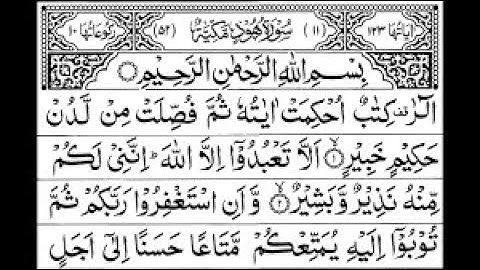 اٰیاتها ١٢٣ (١١) سُوْرَةُ هُوْدٍ مَّكِّيَّةٌ (٥٢) رکوعاتها ١٠
بِسْمِ اللّٰهِ الرَّحْمٰنِ الرَّحِيْمِ
الٓرٰ ࣞ كِتٰبٌ اُحْكِمَتْ اٰيٰتُهٗ ثُمَّ فُصِّلَتْ مِنْ لَّدُنْ
حَكِيْمٍ خَبِيْرٍ ۙ‏﴿١﴾ اَلَّا تَعْبُدُوْۤا اِلَّا اللّٰهَ ؕ اِنَّنِيْ لَكُمْ
مِّنْهُ نَذِيْرٌ وَّبَشِيْرٌ ۙ‏﴿٢﴾ وَّاَنِ اسْتَغْفِرُوْا رَبَّكُمْ ثُمَّ
تُوْبُوْۤا اِلَيْهِ يُمَتِّعْكُمْ مَّتَاعًا حَسَنًا اِلٰۤى اَجَلٍ